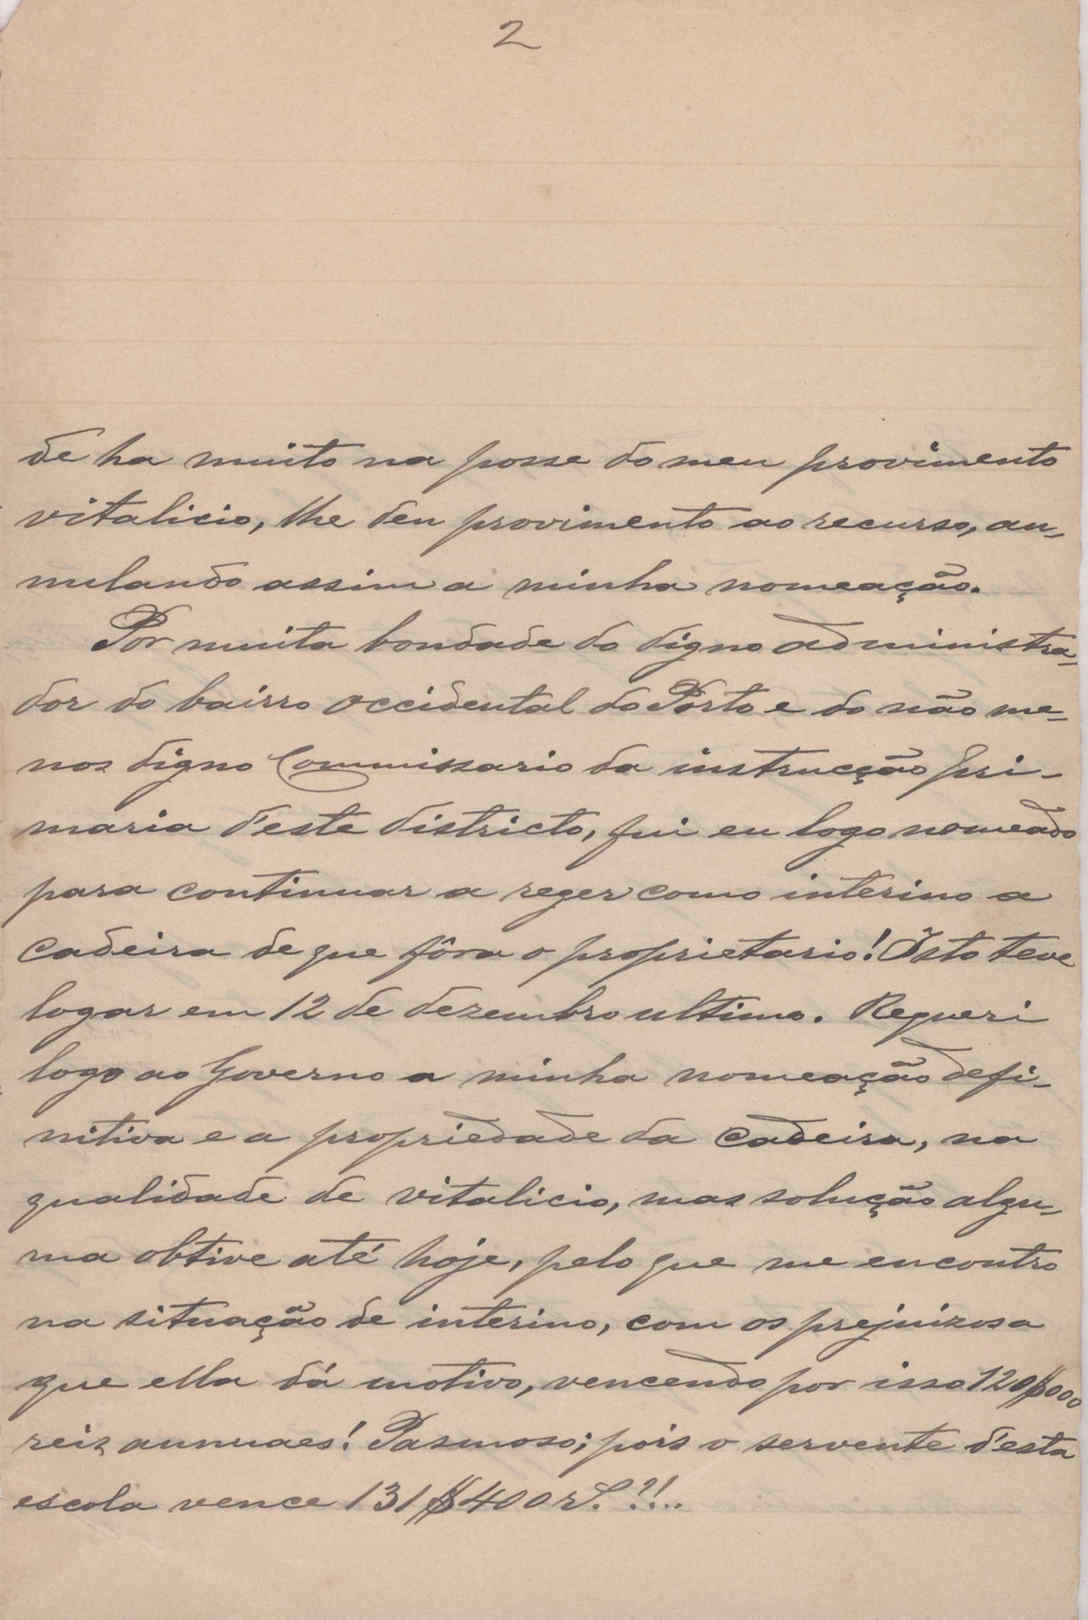 2
de ha muito na posse do meu provimento
vitalicio, lhe deu provimento ao recurso, an-
nulando assim a minha nomeação.
Por muita bondade do digno administra-
dor do bairro occidental do Porto e do não me-
nos digno Commissario da instrucção pri-
maria d'este districto, fui eu logo nomeado
para continuar a reger como interino a
cadeira de que fôra o proprietario! Isto teve
logar em 12 de dezembro ultimo. Requeri
logo ao Governo a minha nomeação defi-
nitiva e a propriedade da cadeira, na
qualidade de vitalicio, mas solução algu-
ma obtive até hoje, pelo que me encontro
na situação de interino, com os prejuizos a
que ella dá motivo, vencendo por isso 120$000
reis annuaes! Pasmoso; pois o servente d'esta
escola vence 131$400 rs.?!!..